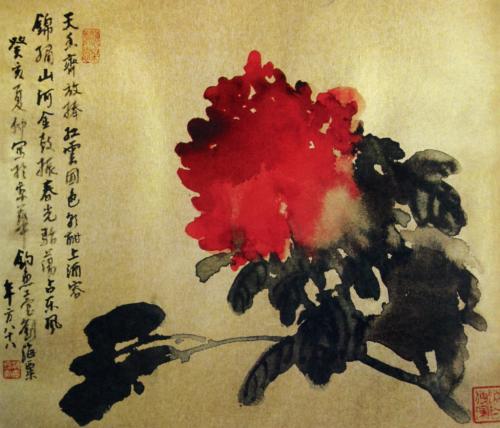 天香齊放捧紅雲國色酣上酒容
錦繡山河金鼓振春光駘蕩占东風
癸亥夏仲寫於京華釣魚臺劉海粟
年方八十八